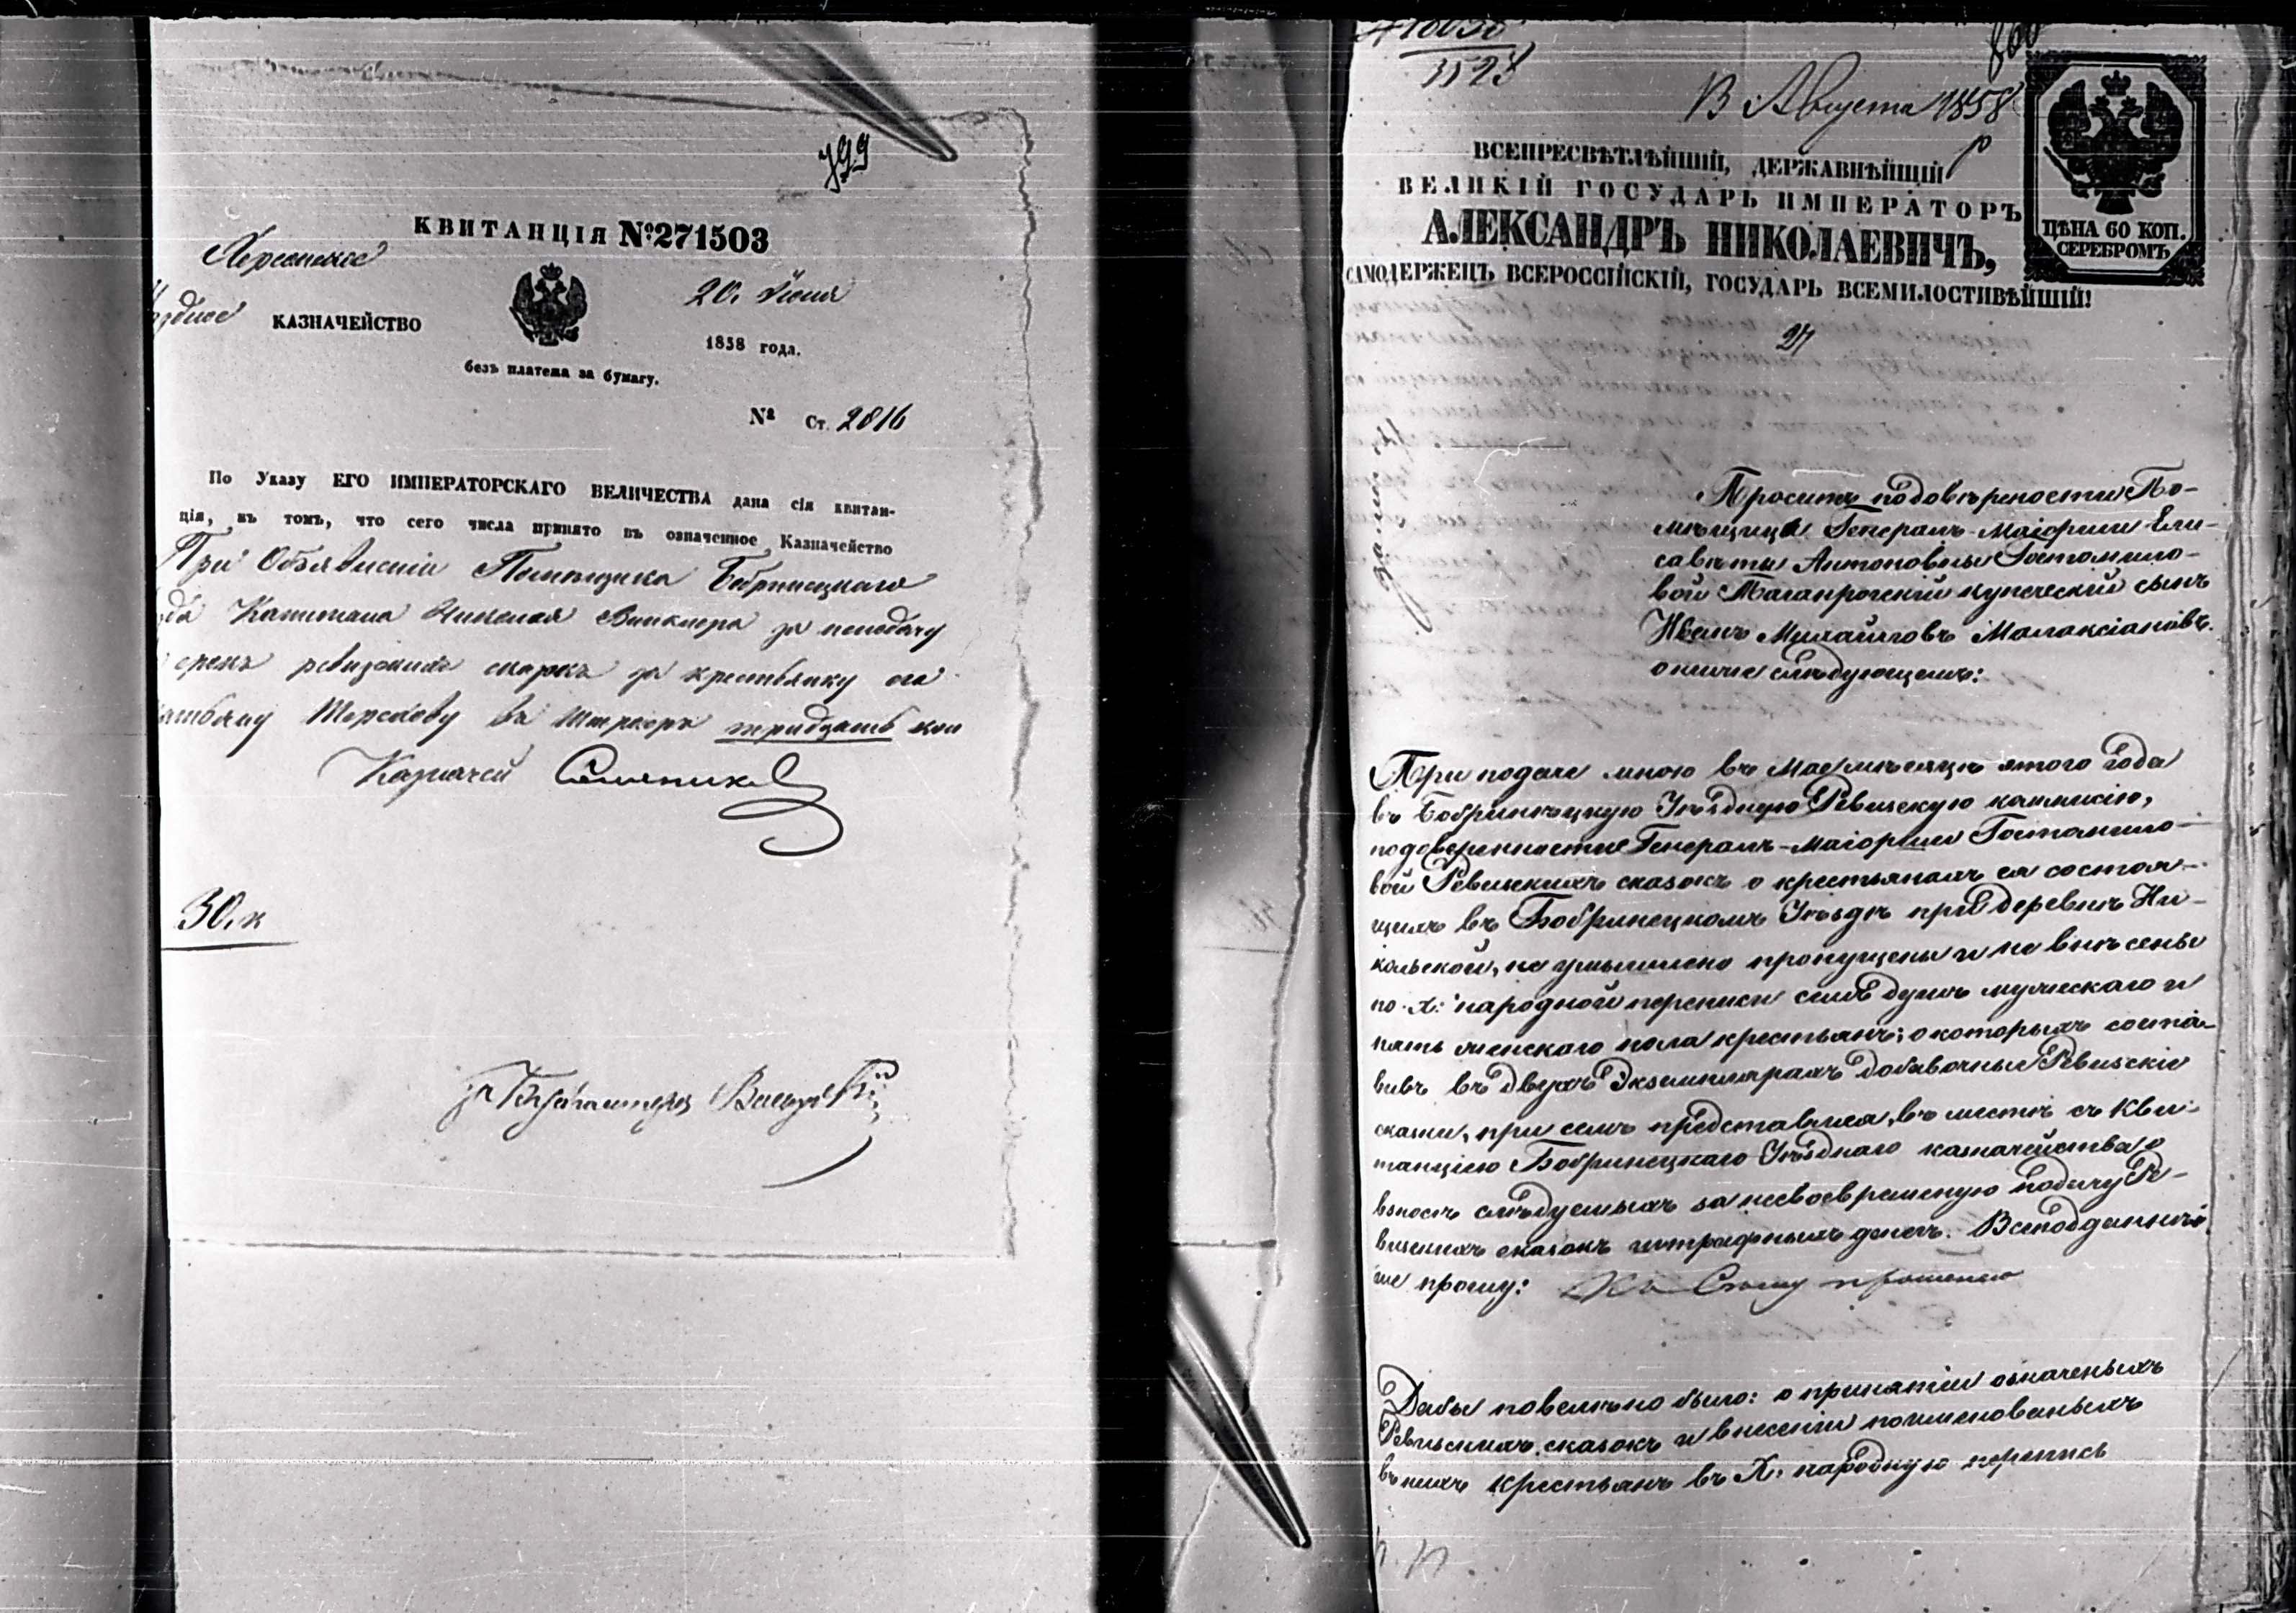 799
КВИТАНЦІЯ №271503
Херсонское
уѣздное КАЗНАЧЕЙСТВО
20. Іюня
1858 года.
безъ платежа за бумагу.
№ Ст. 2816
По Указу ЕГО ИМПЕРАТОРСКАГО ВЕЛИЧЕСТВА дана сія квитан-
ція, въ томъ, что сего числа принято въ означенное Казначейство
При Объявленіи Помѣщика Бобринецкаго
Капитана Николая за неподачу
срокъ ревизскихъ сказокъ за крестьянку его
въ Штрафъ тридцать коп
Казначей
30. к
за Бухгалтера
860
3523
13 Августа 1858
ВСЕПРЕСВѢТЛѢЙШІЙ, ДЕРЖАВНѢЙШІЙ
ВЕЛИКІЙ ГОСУДАРЬ ИМПЕРАТОРЪ
АЛЕКСАНДРЪ НИКОЛАЕВИЧЪ,
САМОДЕРЖЕЦЪ ВСЕРОССІЙСКІЙ, ГОСУДАРЬ ВСЕМИЛОСТИВѢЙШІЙ!
ЦѢНА 60 КОП.
СЕРЕБРОМЪ
Проситъ подовѣрености По-
мѣщицы Генералъ-Маіорши Ели-
саветы Антоновны Гостомило-
вой Таганрогскій купеческій сынъ
Иванъ Михайловъ Малаксіановъ.
о нижеслѣдующемъ:
При подачи мною въ Маѣ мѣсяцѣ этого Года
въ Бобринѣцкую Уѣздную Ревизскую камисію,
подовѣренности Генералъ-Маіорши Гостомило-
вой Ревизскихъ сказокъ о крестьянахъ ея состоя-
щихъ въ Бобринецкомъ Уѣздѣ при деревнѣ Ни-
кольской, не умышлено пропущены и не внѣсены
по X: народной переписи семь душъ мужескаго и
пять женскаго пола крестьянъ; о которыхъ соста-
вивъ въ двухъ Экземплярахъ добавочныя Ревизскіе
сказки, при семъ представляя, въ мѣстѣ съ Кви-
танціею Бобринецкаго Уѣзднаго казначейства о
взносѣ слѣдуемыхъ за несвоевременную подачу Ре-
визскихъ сказокъ штрафныхъ денегъ. Всеподданнѣй
ше прошу: Къ Сему прошенію
Дабы повелѣно было: о принятіи означеныхъ
Ревизскихъ сказокъ и внесеніи поименованыхъ
въ нихъ крестьянъ въ X. народную перепись